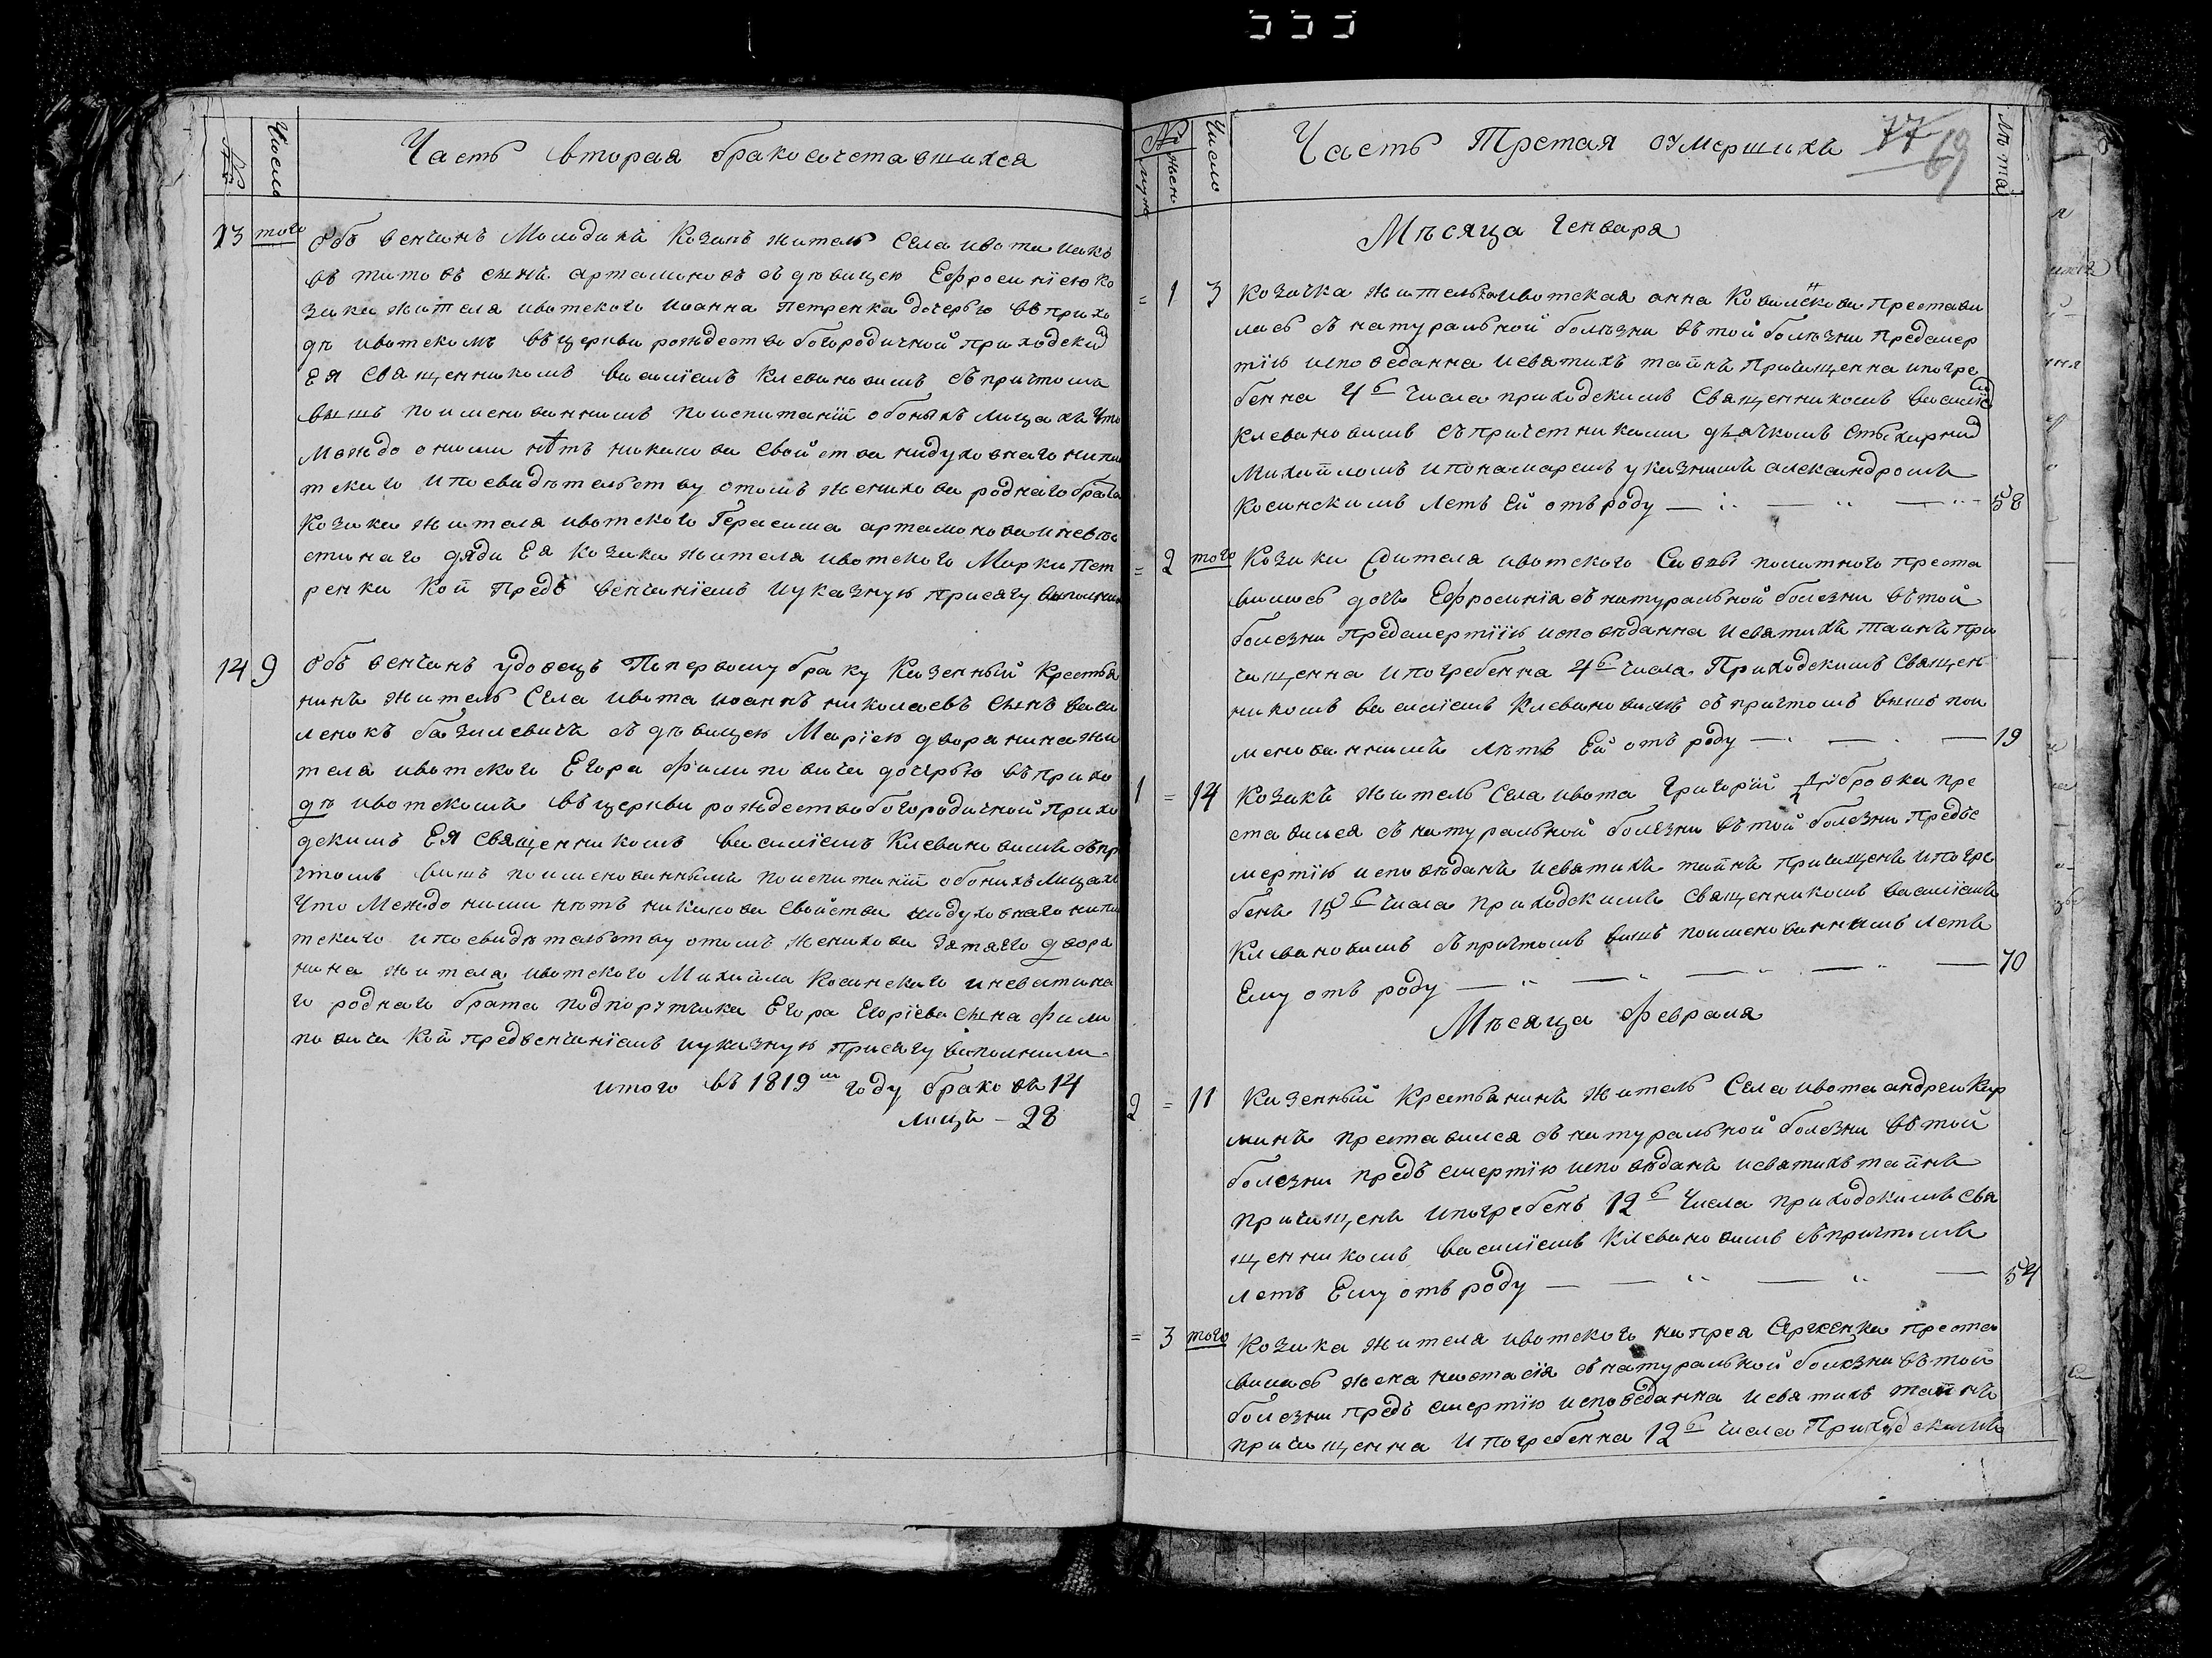 № Число Часть вторая бракосочетавшихся
13 того Объ венчанъ Молодикъ Козакъ житель села Ивота Иакъ
въ титовъ сынъ артамоновъ съ дѣвицею Ефросинїею ко
зака жителя ивотского иоанна Петренка дочерью въ прихо
дѣ ивотскомъ въ церкви рождество богородичной приходским
Ея священникомъ василїемъ Клевановимъ съ причтомъ
вышъ поименованнимъ по испитанїи обоихъ лицахъ что
между оними нѣтъ никакова свойства ни духовнаго ни пло
тскаго и по свидѣтельству отомъ женихова роднаго брата
Козака жителя ивотского Герасима артамонова и невѣ
стинаго дяди Ея Козака жителя ивотского Марка Пет
ренка кои предъ венчанїемъ и указную присягу выполнили
14 9 Объ венчанъ удовецъ По первому браку Казенный Крестья
нинъ житель Села ивота иоаннъ николаевъ сынъ васи
ленокъ базилевичъ съ дѣвицею Марїею дворанина жи
теля ивотского Егора Филиповича дочерью въ прихо
дѣ ивотскомъ въ церкви рождество богородичной прихо
дскимъ Ея священникомъ василїемъ Клевановимъ съ пр
ичтомъ вишъ поименованнымъ по испитанїи обоихъ лицахъ
что Между ними нѣтъ никакова свойства ни духовнаго ни пло
тскаго и по свидѣтельству отомъ женихова зятяго двора
нина жителя ивотского Михаила Косинского и невестина
го роднаго брата подпорутчика Егора Егорїева сына Фили
повича кои предъ венчанїемъ и указную присягу виполнили
итого въ 1819м году браковъ 14
лицъ – 28
№ муж жен Число Часть Третая оумершихъ 77 69 Лѣта
Мѣсяца Генваря
= 1 3 Козачка жителька ивотская анна Ковалскова преставы
лась съ натуральной болѣзни въ той болѣзни предсмер
тїю исповеданна и святихъ тайнъ причащенна и погре
бенна 4го числа приходскимъ Священникомъ василїем
Клевановимъ съ причетниками дьячкомъ стихирным
Михайломъ и понамаремъ указнимъ александромъ
Косинскимъ Летъ Ей отъ роду — 58
= 2 того Козака Жителя ивотского Саввы политного преста
вилась дочь Ефросинїя съ натуральной болезни въ той
болезни предсмертїю исповѣданна и святихъ таинъ при
чащенна и погребенна 4го числа Приходскимъ священ
никомъ василїемъ Клевановимъ съ причтомъ вышъ пои
менованнимъ лѣтъ Ей отъ роду — 19
1 = 14 Козакъ житель Села ивота Григорїй Дубровка пре
ставилься съ натуральной болезни въ той болезни предъ с
мертїю исповѣданъ и святихъ тайнъ причащенъ и погре
бенъ 15го числа приходскимъ священникомъ василїемъ
Клевановимъ съ причтомъ вишъ поименованнымъ летъ
Ему отъ роду — 70
Мѣсяца Февраля
2 = 11 Казенный Крестьянинъ житель Села ивота андреи Кур
минъ преставился съ натуральной болезни въ той
болезни предъ смертїю исповѣданъ и святихъ тайнъ
причащенъ и погребенъ 12го числа приходскимъ свя
щенникомъ василїемъ Клевановимъ съ причтомъ
летъ Ему отъ роду — 54
= 3 того Козака жителя ивотского Сергѣенка преста
вилась жена настасїя съ натуральной болезни въ той
болезни предъ смертїю исповеданна и святихъ тайнъ
причащенна и погребенна 12го числа Приходскимъ